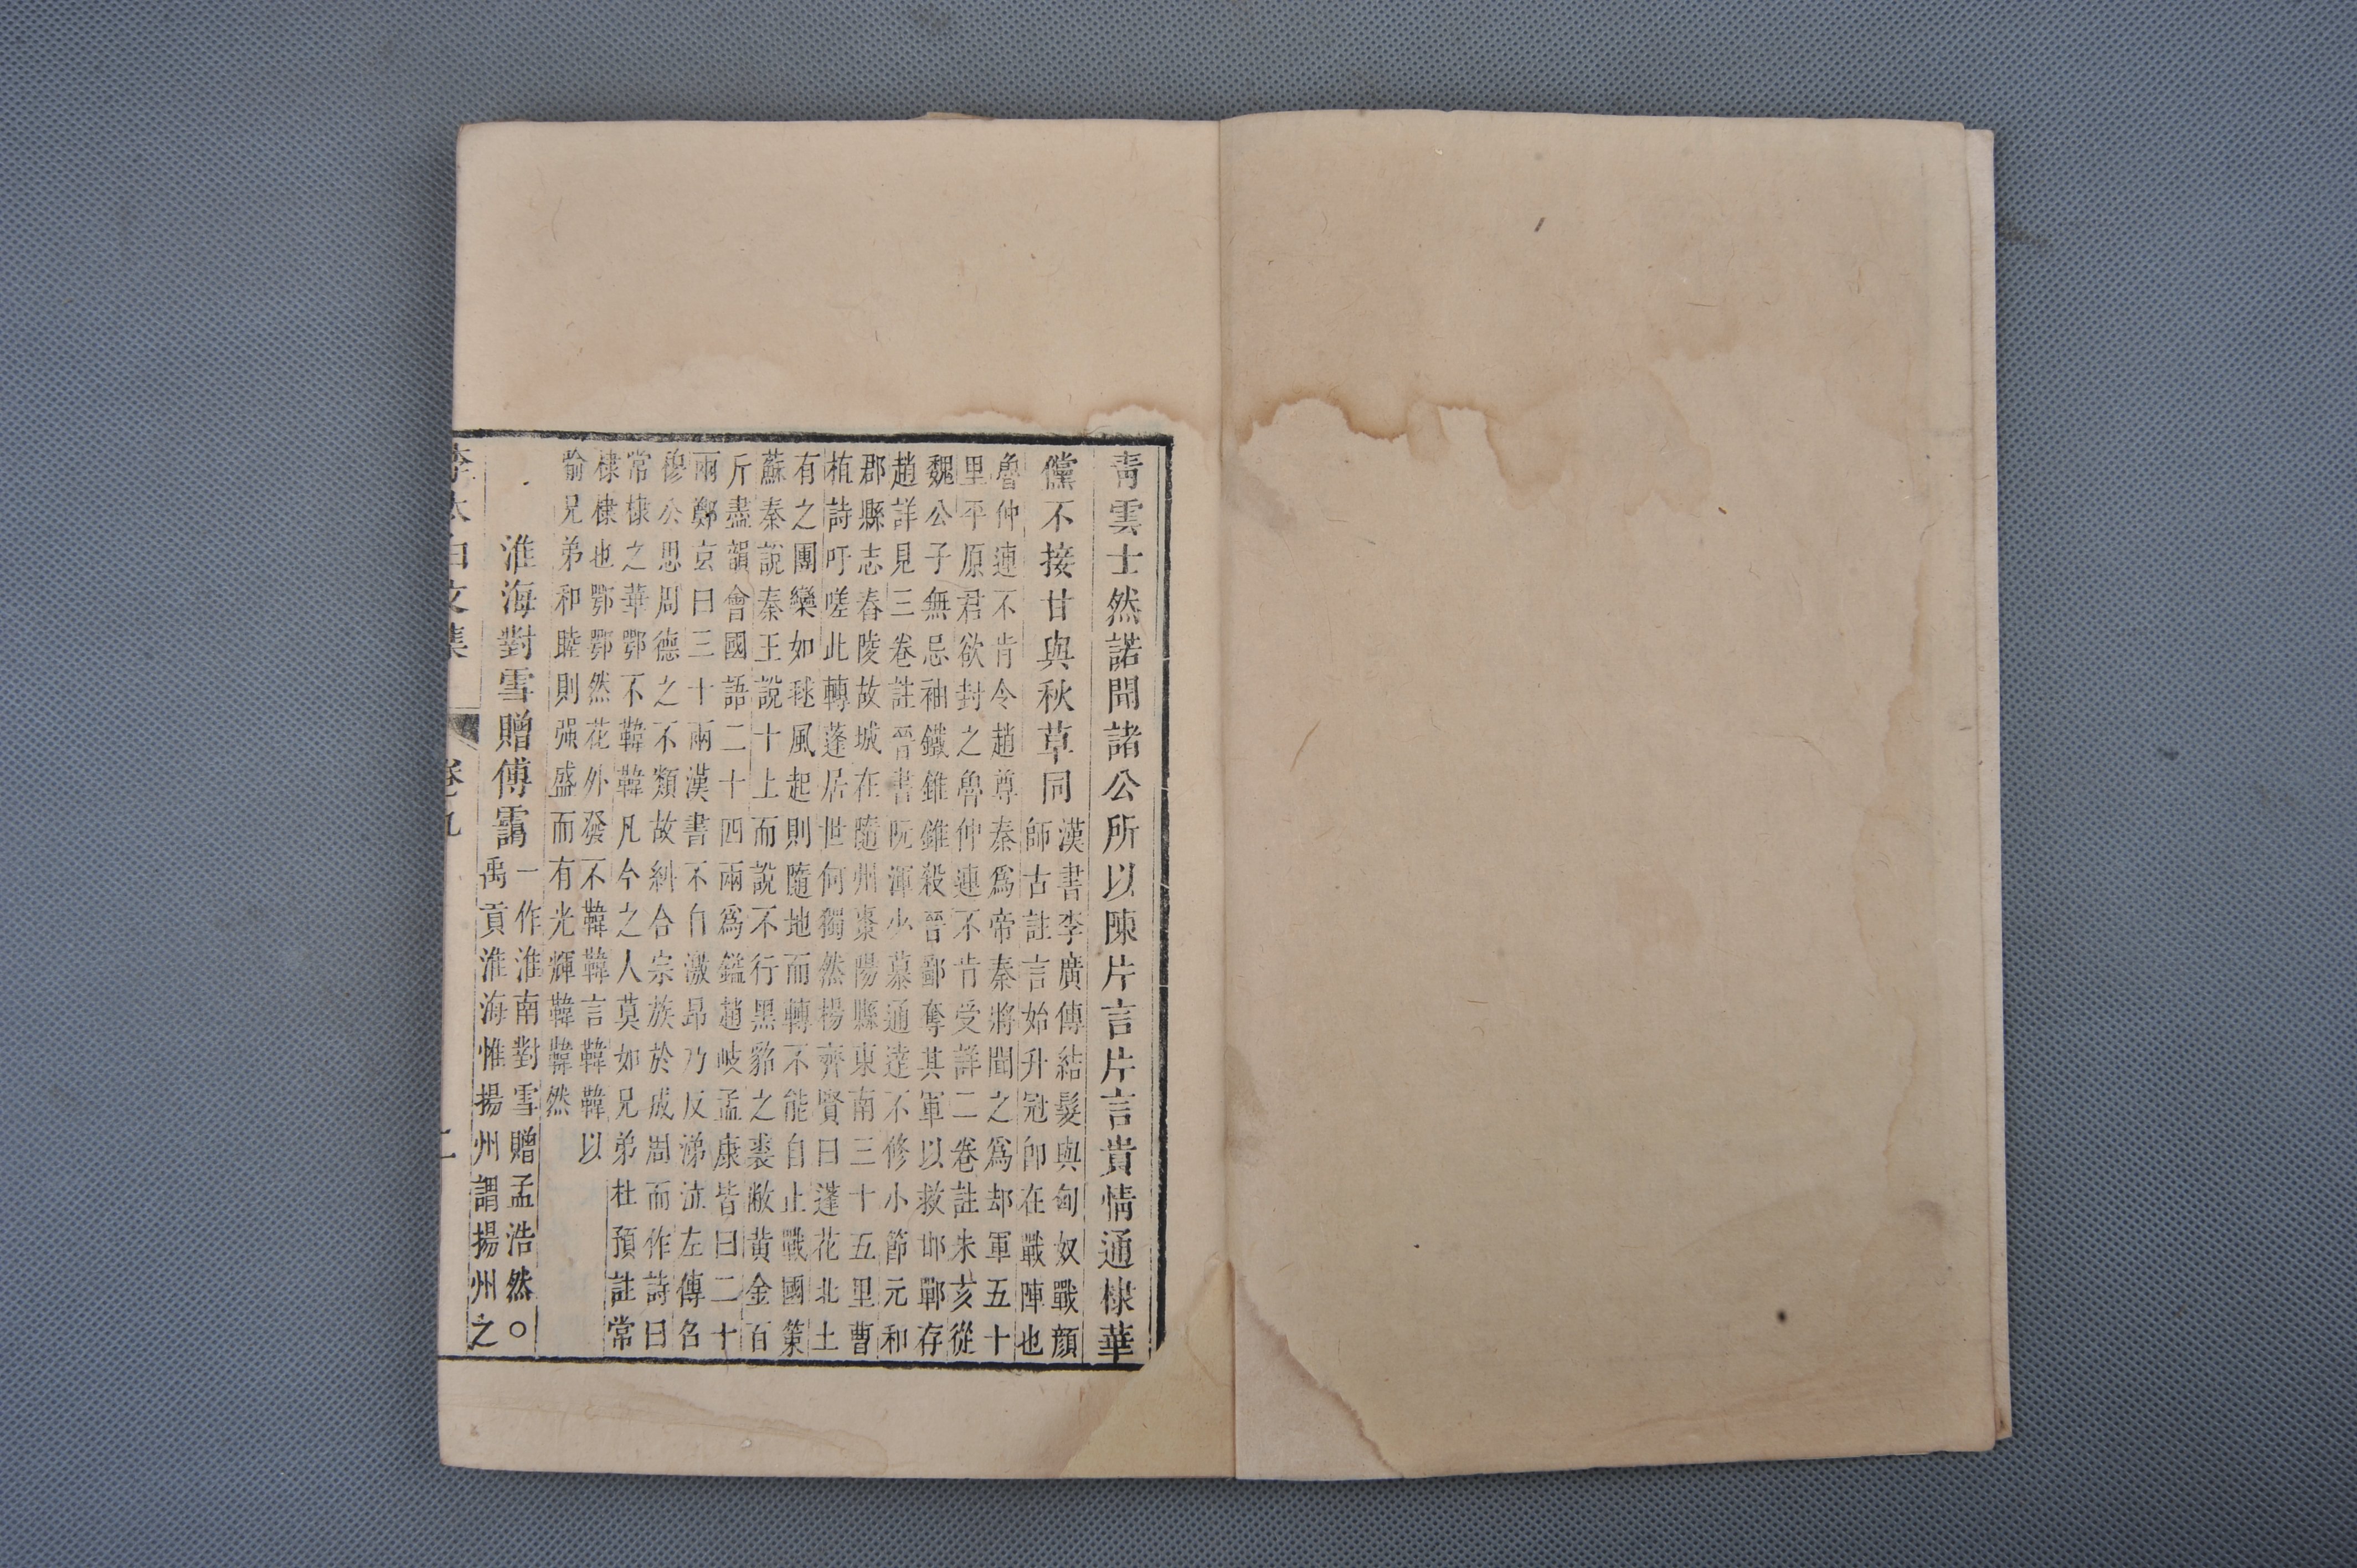 青雲士然諾聞諸公所以陳片言片言貴情通棣華
儻不接甘與秋草同
漢書李廣傳結髮與匈奴戰顔
師古註言始升冠卽在戰陣也
魯仲連不肯令趙尊秦爲帝秦將聞之爲却軍五十
里平原君欲封之魯仲連不肯受詳二卷註朱亥從
魏公子無忌袖鐵錐錐殺晉鄙奪其軍以救邯鄲存
趙詳見三卷註晉書阮渾少慕通達不修小節元和
郡縣志舂陵故城在隨州棗陽縣東南三十五里曹
植詩吁嗟此轉蓬居世何獨然楊齊賢曰蓬花北土
有之團欒如毬風起則隨地而轉不能自止戰國策
蘇秦說秦王說十上而說不行黑貂之裘敝黄金百
斤盡韻會國語二十四兩爲鎰趙岐孟康皆曰二十
兩鄭玄曰三十兩漢書不自激昂乃反涕泣左傳名
穆公思周德之不類故糾合宗族於成周而作詩曰
常棣之華鄂不韡韡凡今之人莫如兄弟杜預註常
棣棣也鄂鄂然花外發不韡韡言韡韡以
喻兄弟和睦則强盛而有光輝韡韡然
淮海對雪贈傅靄
一作淮南對雪贈孟浩然○
禹貢淮海惟揚州謂揚州之
李太白文集 卷九